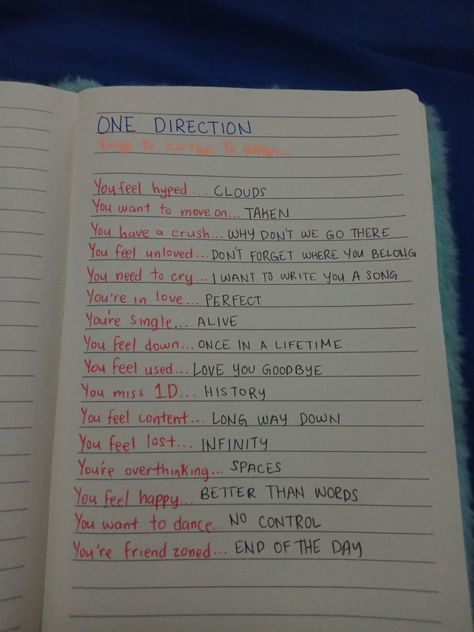 ONE DIRECTION
Songs To Listen To When...
You feel hyped... CLOUDS
You want to move on... TAKEN
You have a crush... WHY DON'T WE GO THERE
You feel unloved... DON'T FORGET WHERE YOU BELONG
You need to cry... I WANT TO WRITE YOU A SONG
You're in love... PERFECT
You're single... ALIVE
You feel down... ONCE IN A LIFETIME
You feel used... LOVE YOU GOODBYE
You miss 1D... HISTORY
You feel content... LONG WAY DOWN
You feel lost... INFINITY
You're overthinking... SPACES
You feel happy... BETTER THAN WORDS
You want to dance... NO CONTROL
You're friend zoned... END OF THE DAY